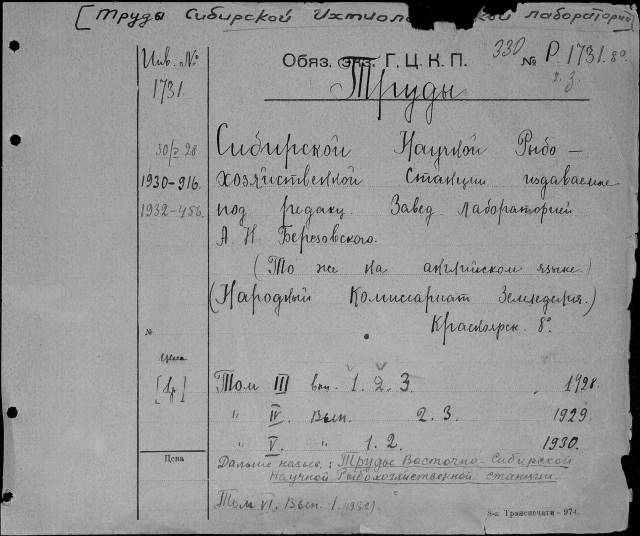 [Труды Сибирской Ихтиологической лаборатории]
Инв. №
1731.
Обяз. экз. Г.Ц.К.П. 330 № Р. 1731. 8º
2. з.
Труды
30/I 28 Сибирской Научной Рыбо-
1930-916. хозяйственной Станции издаваемые
1932-456. под редакц. Завед. лабораторией
А. Н. Березовского.
(То же на английском языке.)
(Народный Комиссариат Земледелия.)
№ Красноярск. 8º.
сцена
[1р] Том III вып. 1. 2. 3. 1928.
" IV. Вып. 2. 3. 1929.
" V. " 1. 2. 1930.
Цена
Дальше назыв.: Труды Восточно-Сибирской
Научной Рыбохозяйственной станции.
Том VI. Вып. 1. 1932).
8-я Транспечати-974.